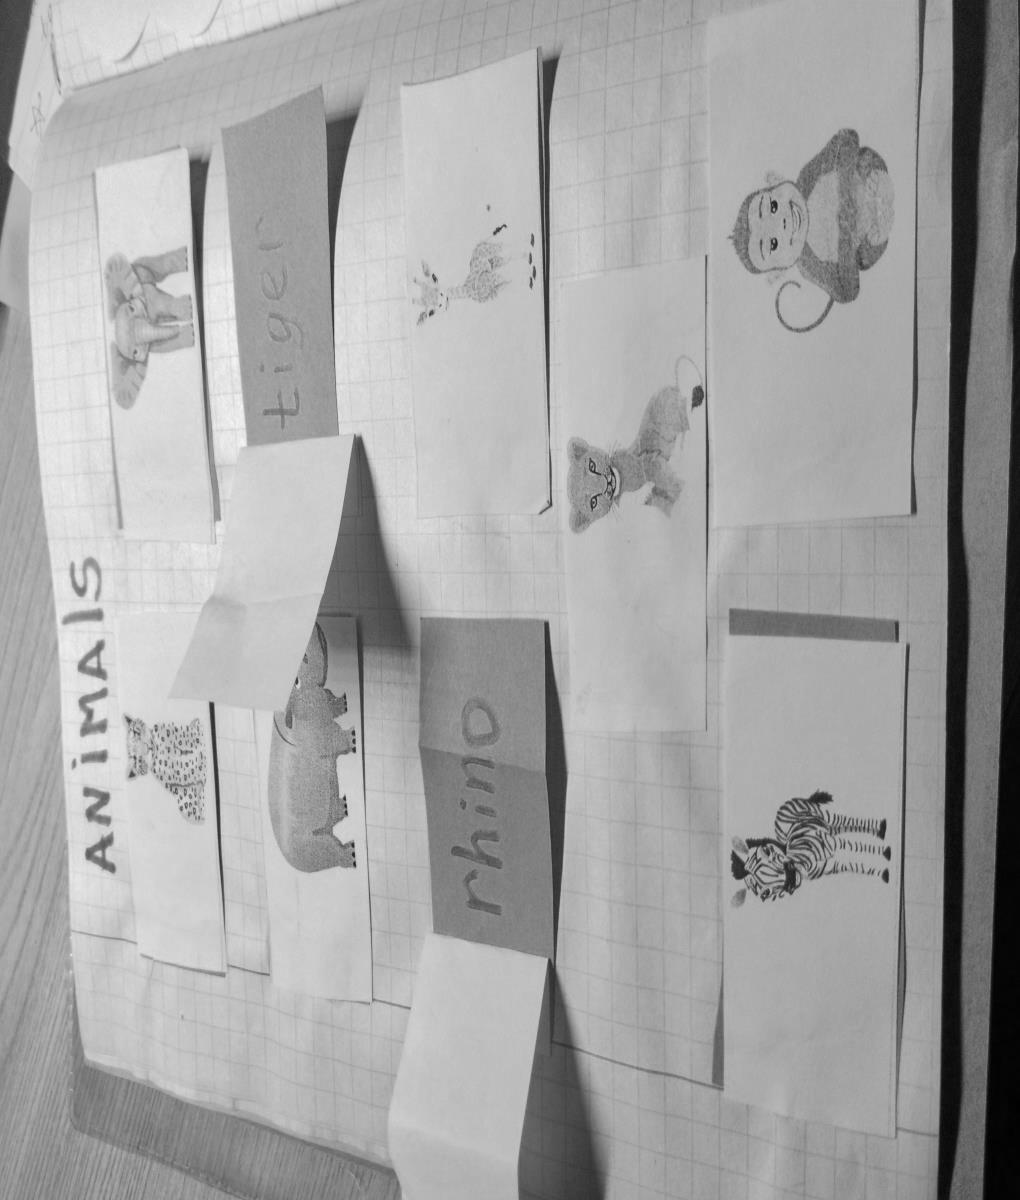 ANiMAlS
tiger
rhino